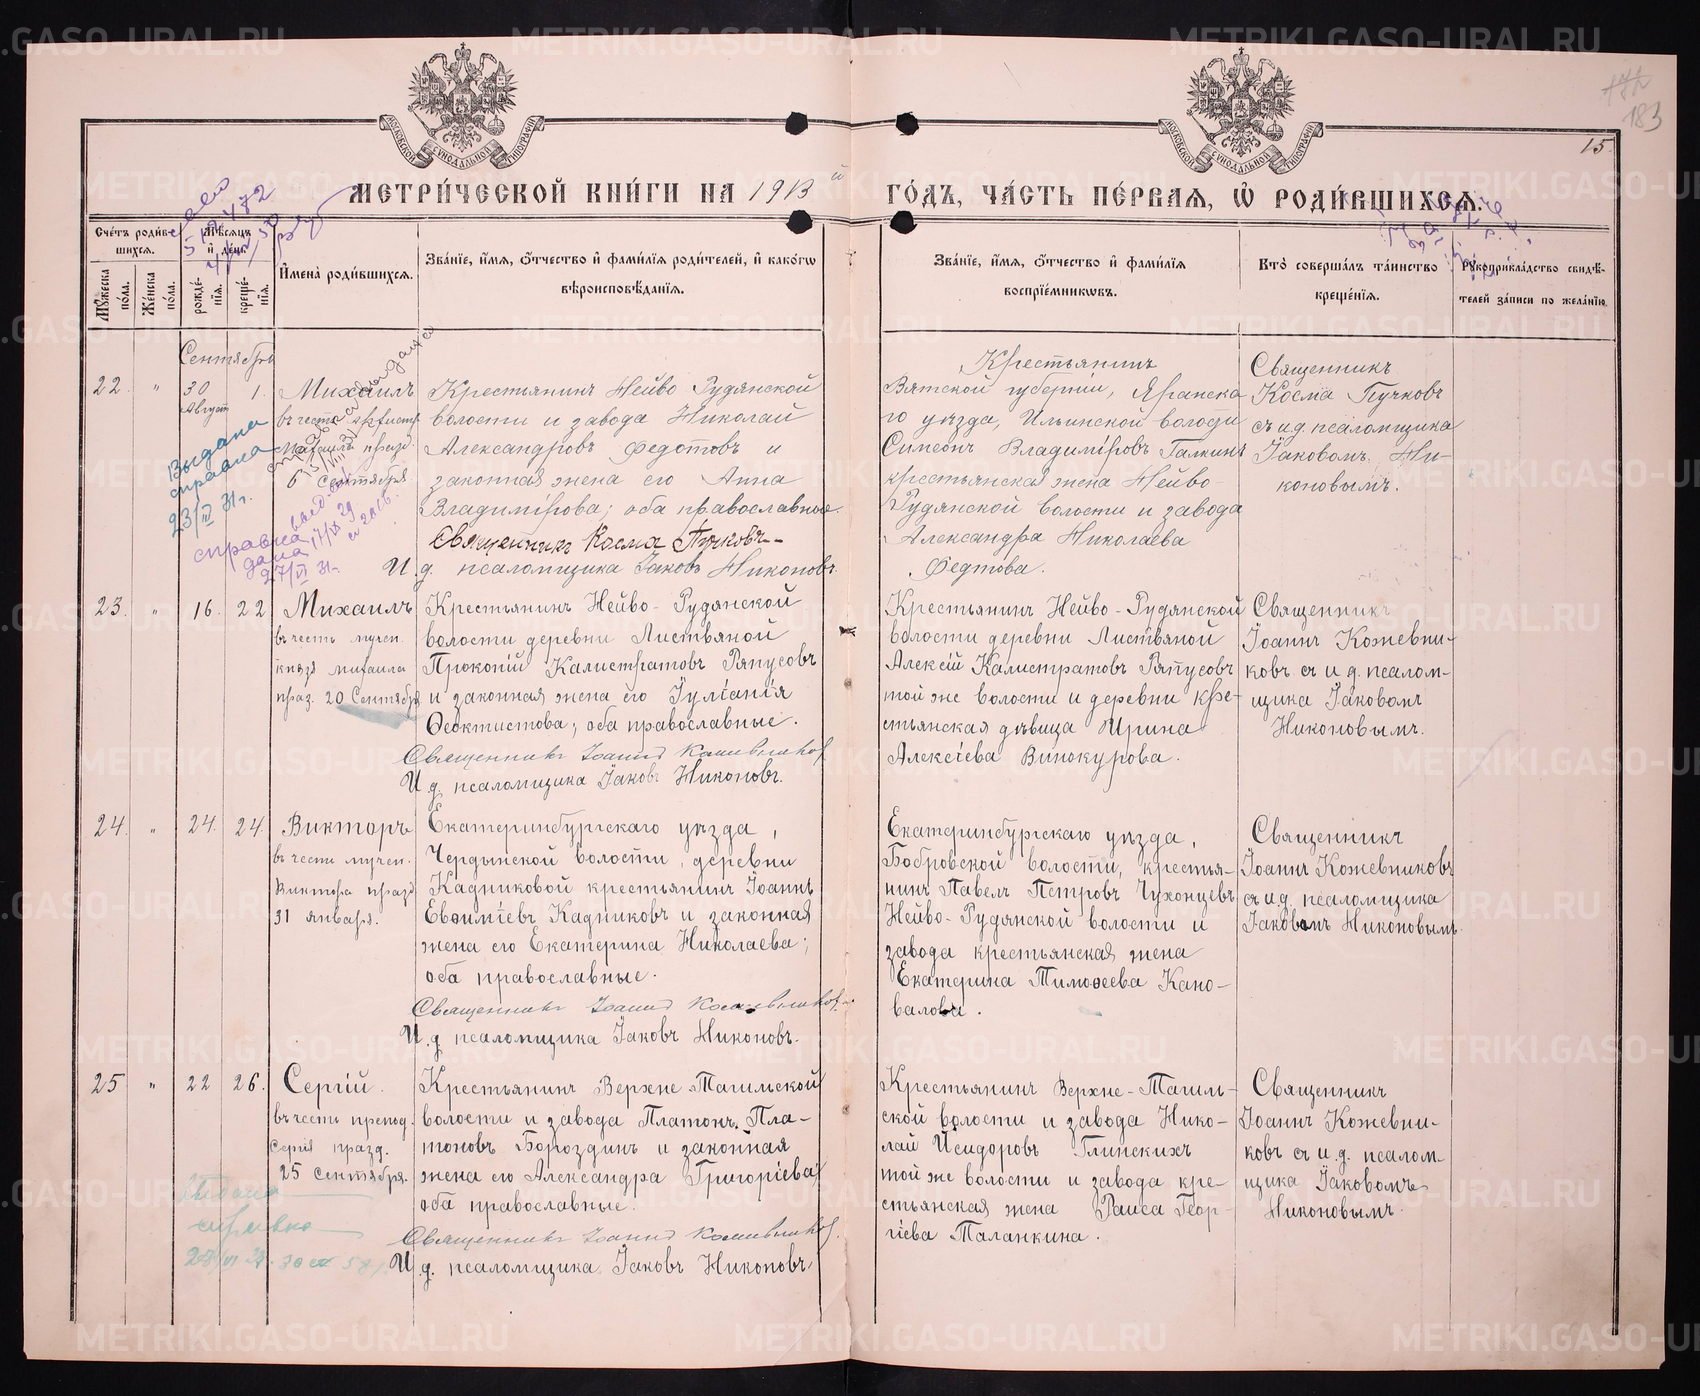 183
15.
МЕТРИ́ЧЕСКОЙ КНИ́ГИ НА 1913 й ГО́ДЪ, ЧА́СТЬ ПЕ́РВАЯ, Ѡ҆ РОДИ́ВШИХСЯ.
МОСКОВСКОЙ СѴНОДАЛЬНОЙ ТИПОГРАФІИ
МОСКОВСКОЙ СѴНОДАЛЬНОЙ ТИПОГРАФІИ
Сче́тъ роди́в-
шихся.
Му́жеска по́ла.
Же́нска по́ла.
Мѣ́сяцъ
и҆ де́нь
рожде́-
нїя.
креще́-
нїя.
И҆мена̀ роди́вшихся.
Зва́нїе, и҆́мя, ѻ҆́тчество и҆ фами́лїя роди́телей, и҆ како́гѡ
вѣроисповѣ́данїя.
Зва́нїе, и҆́мя, ѻ҆́тчество и҆ фами́лїя
воспрїе́мникѡвъ.
Кто̀ соверша́лъ та́инство
креще́нїя.
Рꙋкоприкла́дство свидѣ́-
телей за́писи по жела́нїю.
Сентябрь
22.
"
30
Август
1.
Михаилъ
въ честь
Михаила празд.
6 Сентября
Крестьянинъ Нейво Рудянской
волости и завода Николай
Александровъ Федотовъ и
законная жена его Анна
Владимірова; оба православные.
Священникъ Косма Пучковъ
И. д. псаломщика Іаковъ Никоновъ.
Крестьянинъ
Вятской губерніи, Яранска
го уѣзда, Ильинской волости
Симеонъ Владиміровъ Галкинъ
крестьянская жена Нейво-
Рудянской волости и завода
Александра Николаева
Федтова.
Священникъ
Косма Пучковъ
съ и.д. псаломщика
Іаковомъ Ни-
коновымъ.
Выдана
справка
23/IV 31г.
справка
дана
27/VI 31г.
23.
"
16.
22
Михаилъ
въ честь мучен.
князя Михаила
праз. 20 Сентября
Крестьянинъ Нейво-Рудянской
волости деревни Листвяной
Прокопій Калистратовъ Ряпусовъ
и законная жена его Іуліанія
Ѳеоктистова; оба православные.
Священникъ Іоаннъ Кожевниковъ
И. д. псаломщика Іаковъ Никоновъ.
Крестьянинъ Нейво-Рудянской
волости деревни Листвяной
Алексій Калистратовъ Ряпусовъ
той же волости и деревни кре-
стьянская дѣвица Ирина
Алексіева Винокурова.
Священникъ
Іоаннъ Кожевни-
ковъ съ и.д. псалом-
щика Іаковомъ
Никоновымъ.
24.
"
24.
24.
Викторъ
въ честь мучен.
Виктора празд
31 января.
Екатеринбургскаго уѣзда,
Чердынской волости, деревни
Кадниковой крестьянинъ Іоаннъ
Евѳиміевъ Кадниковъ и законная
жена его Екатерина Николаева;
оба православные.
Священникъ Іоаннъ Кожевниковъ.
И. д. псаломщика Іаковъ Никоновъ.
Екатеринбургскаго уѣзда,
Бобровской волости, крестья-
нинъ Павелъ Петровъ Чухонцевъ
Нейво-Рудянской волости и
завода крестьянская жена
Екатерина Тимоѳеева Коно-
валова.
Священникъ
Іоаннъ Кожевниковъ
съ и.д. псаломщика
Іаковомъ Никоновымъ.
25
"
22
26.
Сергій.
въ честь препод.
Сергія празд.
25 сентября.
Крестьянинъ Верхне-Тагильской
волости и завода Платонъ Пла-
тоновъ Бороздинъ и законная
жена его Александра Григоріева
оба православные.
Священникъ Іоаннъ Кожевниковъ.
И. д. псаломщика Іаковъ Никоновъ
Крестьянинъ Верхне-Тагиль-
ской волости и завода Нико-
лай Исидоровъ Глинскихъ
той же волости и завода кре-
стьянская жена Раиса Геор-
гіева Таланкина.
Священникъ
Іоаннъ Кожевни-
ковъ съ и.д. псалом-
щика Іаковомъ
Никоновымъ.
Выдана
справка
METRIKI.GASO-URAL.RU